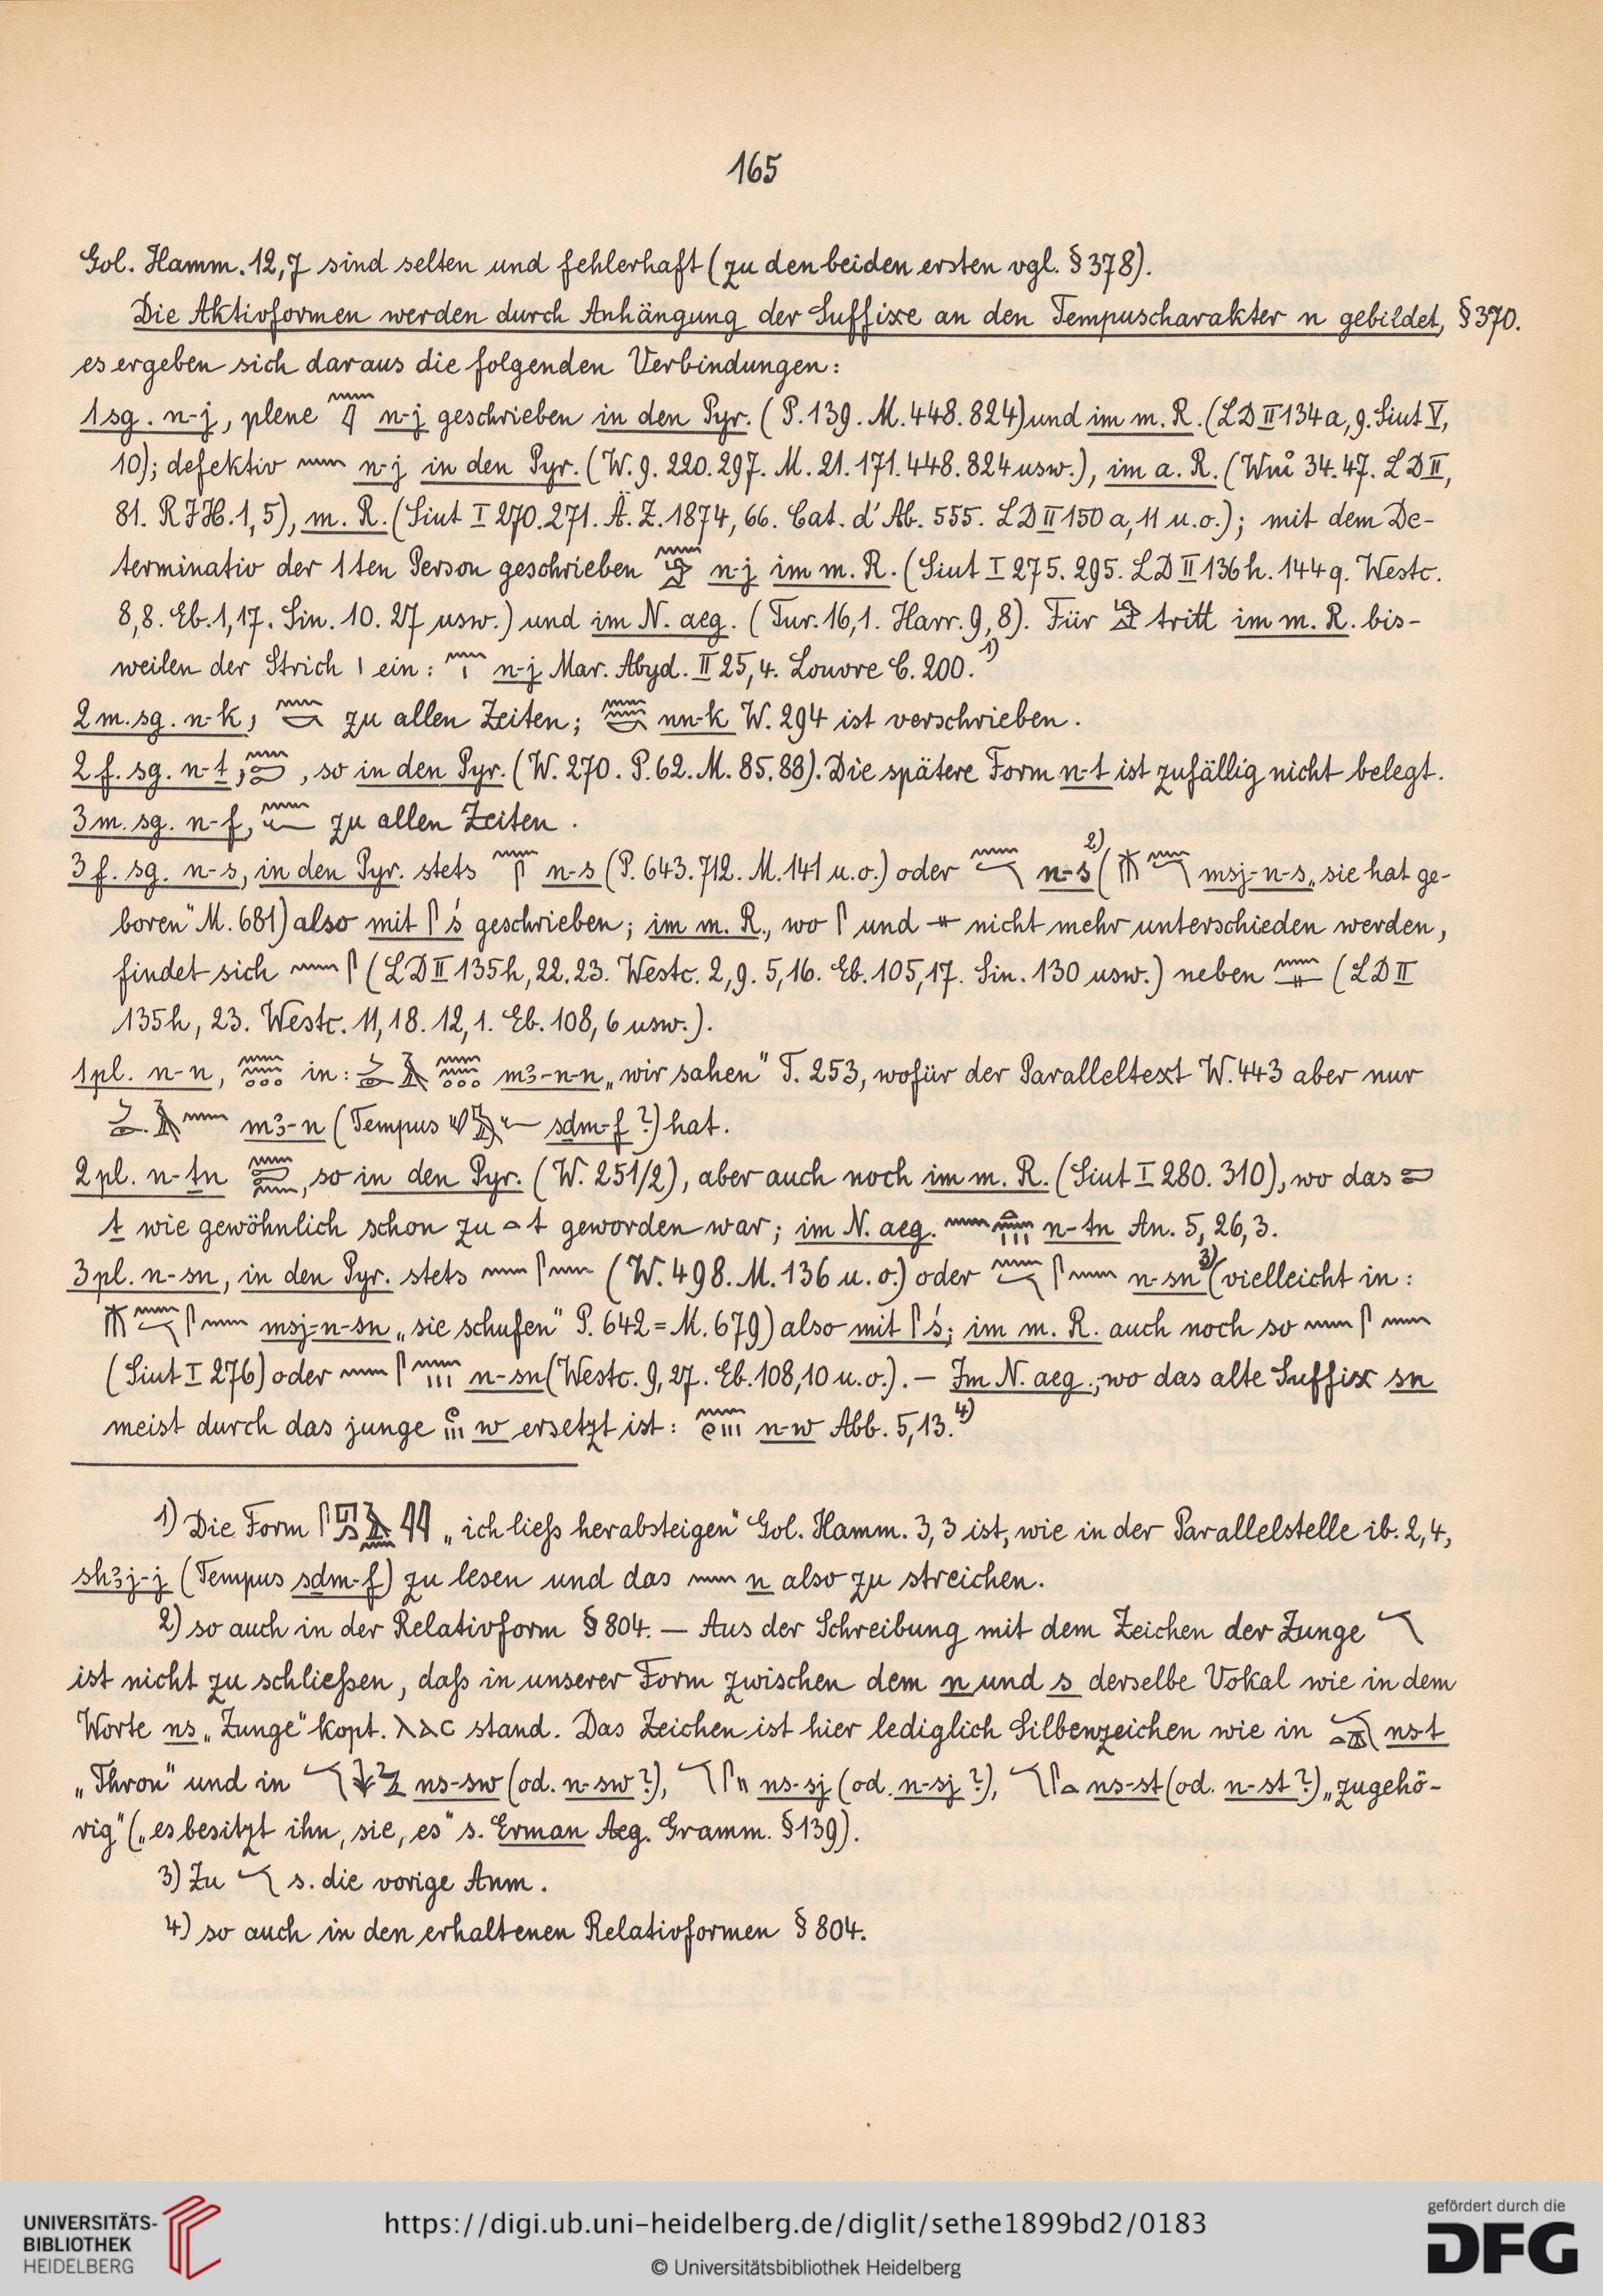 165
Gol. Hamm. 12,7 sind selten und fehlerhaft (zu den beiden ersten vgl. § 378).
Die Aktivformen werden durch Anhängung der Suffixe an den Tempuscharakter n gebildet, § 370.
es ergeben sich daraus die folgenden Verbindungen:
1 sg. n-j, plene 𓈖𓇋 n-j geschrieben in den Pyr. (P. 139. M. 448. 824) und im m. R. (LD II 134a, 9. Siut V,
10); defektiv 𓈖 n-j in den Pyr. (W. 9. 220. 297. M. 21. 171. 448. 824 usw.), im a. R. (Wnj 34. 47. LD II,
81. RJH. 1, 5), m. R. (Siut I 270. 271. Ä. Z. 1874, 66. Cat. d'Ab. 555. LD II 150 a, 11 u. o.); mit dem De-
terminativ der 1ten Person geschrieben 𓈖𓀀 n-j im m. R. (Siut I 275. 295. LD II 136 h. 144 q. Westc.
8,8. Eb. 1,17. Sin. 10. 27 usw.) und im N. aeg. (Tur. 16,1. Harr. 9,8). Für 𓀀 tritt im m. R. bis-
weilen der Strich 𓏤 ein: 𓈖𓏤 n-j Mar. Abyd. II 25,4. Louvre C. 200. 1)
2 m. sg. n-k, 𓈖𓎡 zu allen Zeiten; 𓈖𓈖𓎡 nn-k W. 294 ist verschrieben.
2 f. sg. n-ṯ, 𓈖𓍿, so in den Pyr. (W. 270. P. 62. M. 85. 88). Die spätere Form n-t ist zufällig nicht belegt.
3 m. sg. n-f, 𓈖𓆑 zu allen Zeiten.
3 f. sg. n-s, in den Pyr. stets 𓈖𓋴 n-s (P. 643. 712. M. 141 u. o.) oder 𓈖𓄓 n-s 2) (𓄟𓈖𓄓 msj-n-s „sie hat ge-
boren" M. 681) also mit 𓋴 ś geschrieben; im m. R., wo 𓋴 und 𓊃 nicht mehr unterschieden werden,
findet sich 𓈖𓋴 (LD II 135h, 22. 23. Westc. 2,9. 5,16. Eb. 105,17. Sin. 130 usw.) neben 𓈖𓊃 (LD II
135h, 23. Westc. 11,18. 12,1. Eb. 108,6 usw.).
1 pl. n-n, 𓈖𓈖𓏥 in: 𓌳𓁹𓄿𓈖𓈖𓏥 mȝ-n-n „wir sahen" T. 253, wofür der Paralleltext W. 443 aber nur
𓌳𓁹𓄿𓈖 mȝ-n (Tempus 𓄔𓅓𓆑 sdm-f ?) hat.
2 pl. n-ṯn 𓈖𓍿𓈖, so in den Pyr. (W. 251/2), aber auch noch im m. R. (Siut I 280. 310), wo das 𓍿
ṯ wie gewöhnlich schon zu 𓏏 t geworden war; im N. aeg. 𓈖𓏏𓈖𓏥 n-tn An. 5, 26, 3.
3 pl. n-sn, in den Pyr. stets 𓈖𓋴𓈖 (W. 498. M. 136 u. o.) oder 𓈖𓄓𓋴𓈖 n-sn 3) (vielleicht in:
𓄟𓈖𓄓𓋴𓈖 msj-n-sn „sie schufen" P. 642 = M. 679) also mit 𓋴 ś; im m. R. auch noch so 𓈖𓋴𓈖
(Siut I 276) oder 𓈖𓋴𓈖𓏥 n-sn (Westc. 9,27. Eb. 108,10 u. o.). — Im N. aeg., wo das alte Suffix sn
meist durch das junge 𓏲𓏥 w ersetzt ist: 𓈖𓏲𓏥 n-w Abb. 5,13. 4)
1) Die Form „ich ließ herabsteigen" Gol. Hamm. 3,3 ist, wie in der Parallelstelle ib. 2,4,
shȝj-j (Tempus sdm-f) zu lesen und das 𓈖 n also zu streichen.
2) so auch in der Relativform § 804. — Aus der Schreibung mit dem Zeichen der Zunge 𓄓
ist nicht zu schließen, daß in unserer Form zwischen dem n und s derselbe Vokal wie in dem
Worte ns „Zunge" kopt. ⲗⲁⲥ stand. Das Zeichen ist hier lediglich Silbenzeichen wie in ns-t
„Thron" und in ns-sw (od. n-sw ?), ns-sj (od. n-sj ?), ns-st (od. n-st ?) „zugehö-
rig" („es besitzt ihn, sie, es" s. Erman Aeg. Gramm. § 139).
3) Zu 𓄓 s. die vorige Anm.
4) so auch in den erhaltenen Relativformen § 804.
UNIVERSITÄTS-
BIBLIOTHEK
HEIDELBERG
https://digi.ub.uni-heidelberg.de/diglit/sethe1899bd2/0183
© Universitätsbibliothek Heidelberg
gefördert durch die
DFG